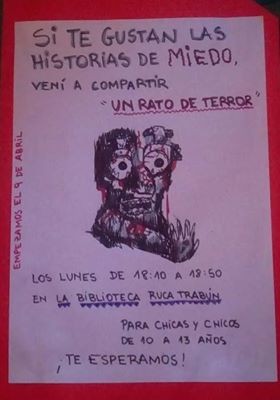 SI TE GUSTAN LAS
HISTORIAS DE MIEDO,
VENÍ A COMPARTIR
"UN RATO DE TERROR"
EMPEZAMOS EL 9 DE ABRIL
LOS LUNES DE 18:10 A 18:50
EN LA BIBLIOTECA RUCA TRABÚN
PARA CHICAS Y CHICOS
DE 10 A 13 AÑOS
¡TE ESPERAMOS!